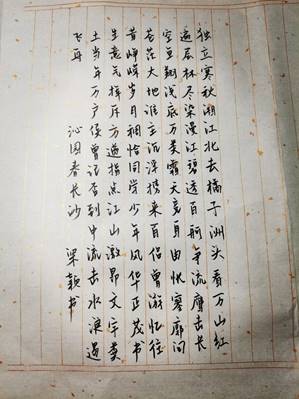 独立寒秋湘江北去橘子洲头看万山红
遍层林尽染漫江碧透百舸争流鹰击长
空鱼翔浅底万类霜天竞自由怅寥廓问
苍茫大地谁主沉浮携来百侣曾游忆往
昔峥嵘岁月稠恰同学少年风华正茂书
生意气挥斥方遒指点江山激昂文字粪
土当年万户侯曾记否到中流击水浪遏
飞舟 沁园春长沙 梁书